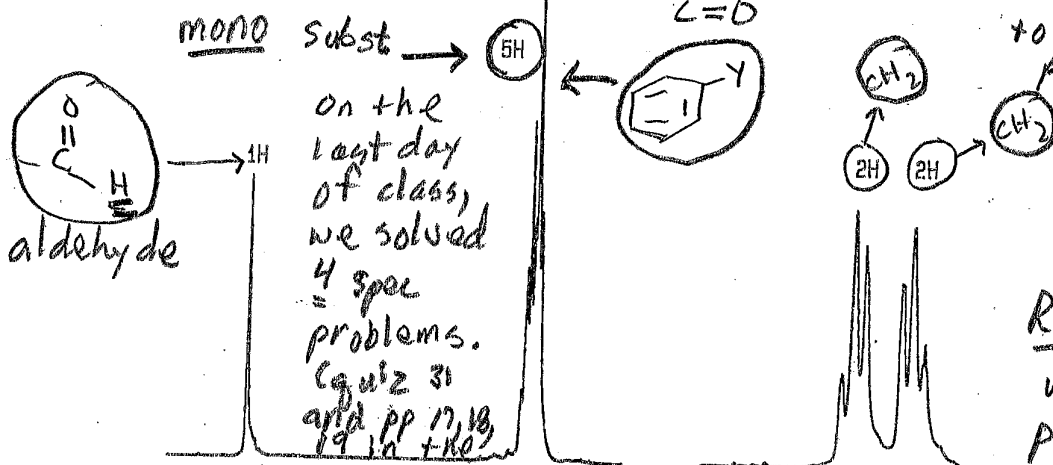 C=O
to
mono subst
5H
Y
CH2
CH2
O
||
C
H
1H
aldehyde
2H
2H
on the
last day
of class,
we solved
4 spec
problems.
(quiz 31
and pp 17, 18,
19 in the
R
P